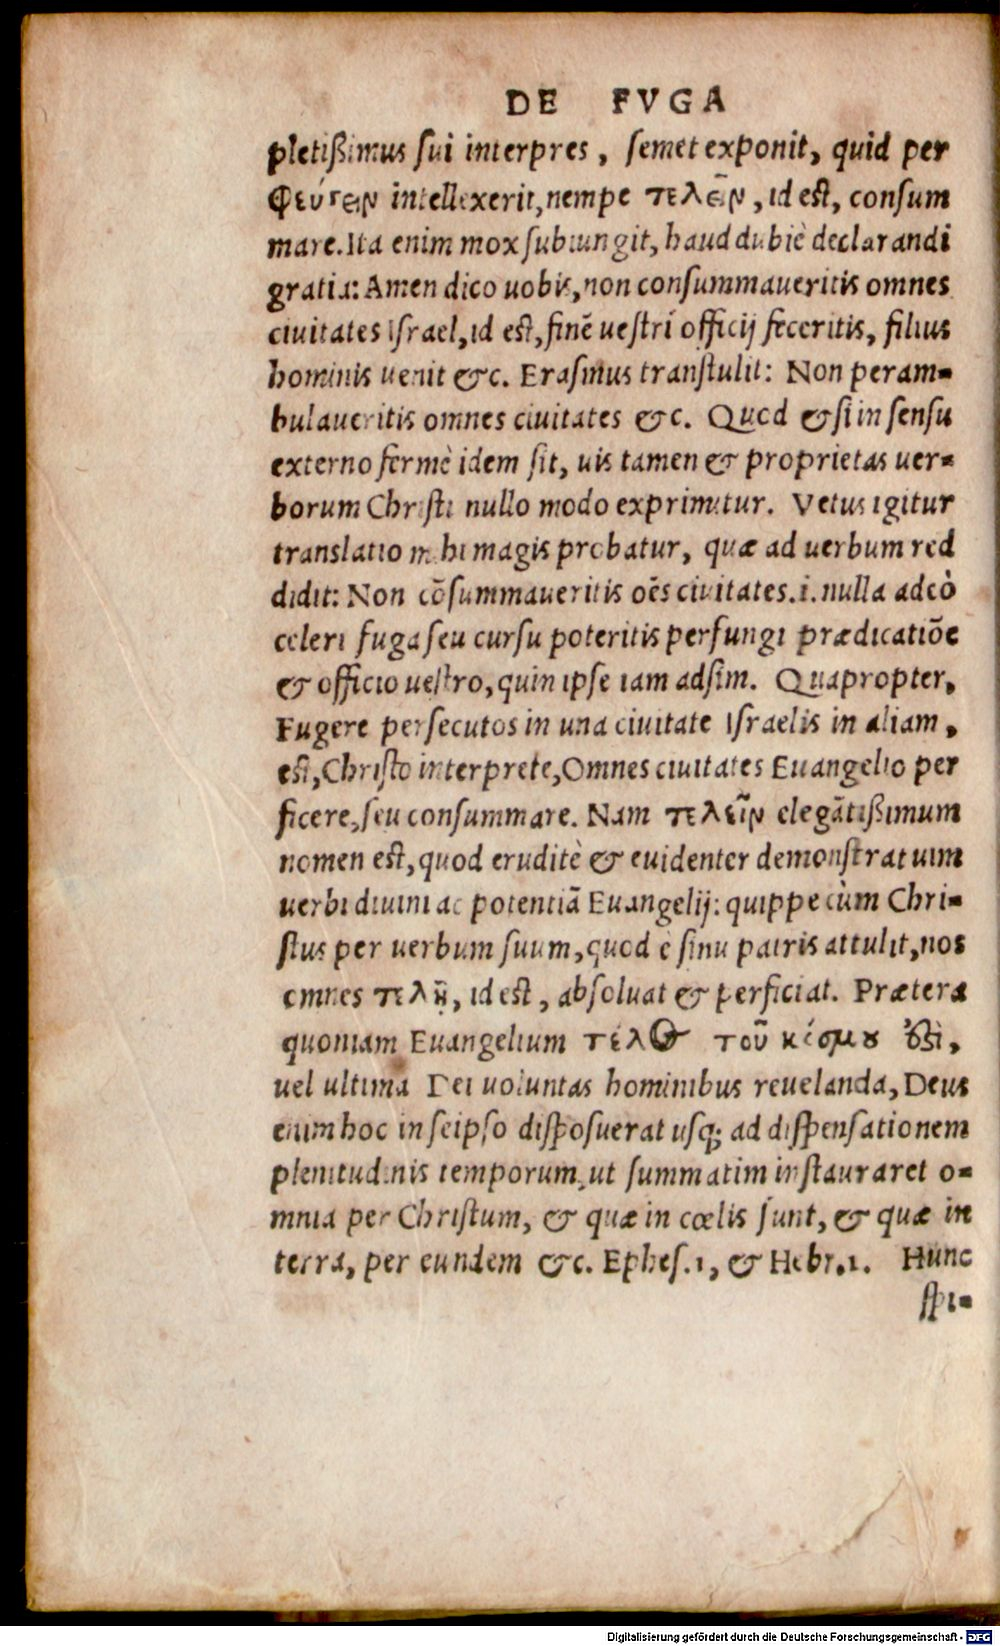 DE FVGA
pletißimus sui interpres, semet exponit, quid per
φεύγειν intellexerit, nempe τελεῖν, id est, consum
mare. Ita enim mox subiungit, haud dubiè declarandi
gratia: Amen dico uobis, non consummaueritis omnes
ciuitates Israel, id est, finē uestri officij feceritis, filius
hominis uenit &c. Erasmus transtulit: Non peram-
bulaueritis omnes ciuitates &c. Quod & si in sensu
externo fermè idem sit, uis tamen & proprietas uer-
borum Christi nullo modo exprimitur. Vetus igitur
translatio mihi magis probatur, quæ ad uerbum red
didit: Non cōsummaueritis oēs ciuitates .i. nulla adeò
celeri fuga seu cursu poteritis perfungi prædicatiōe
& officio uestro, quin ipse iam adsim. Quapropter,
Fugere persecutos in una ciuitate Israelis in aliam,
est, Christo interprete, Omnes ciuitates Euangelio per
ficere, seu consummare. Nam τελεῖν elegātißimum
nomen est, quod eruditè & euidenter demonstrat uim
uerbi diuini ac potentiā Euangelij: quippe cùm Chri-
stus per uerbum suum, quod è sinu patris attulit, nos
omnes τελῇ, id est, absoluat & perficiat. Prætera
quoniam Euangelium τέλος τοῦ κόσμου ὅτι,
uel ultima Dei uoluntas hominibus reuelanda, Deus
enim hoc in seipso disposuerat usq; ad dispensationem
plenitudinis temporum, ut summatim instauraret o-
mnia per Christum, & quæ in cœlis sunt, & quæ in
terra, per eundem &c. Ephes. 1, & Hebr. 1. Hunc
spi-
Digitalisierung gefördert durch die Deutsche Forschungsgemeinschaft - DFG